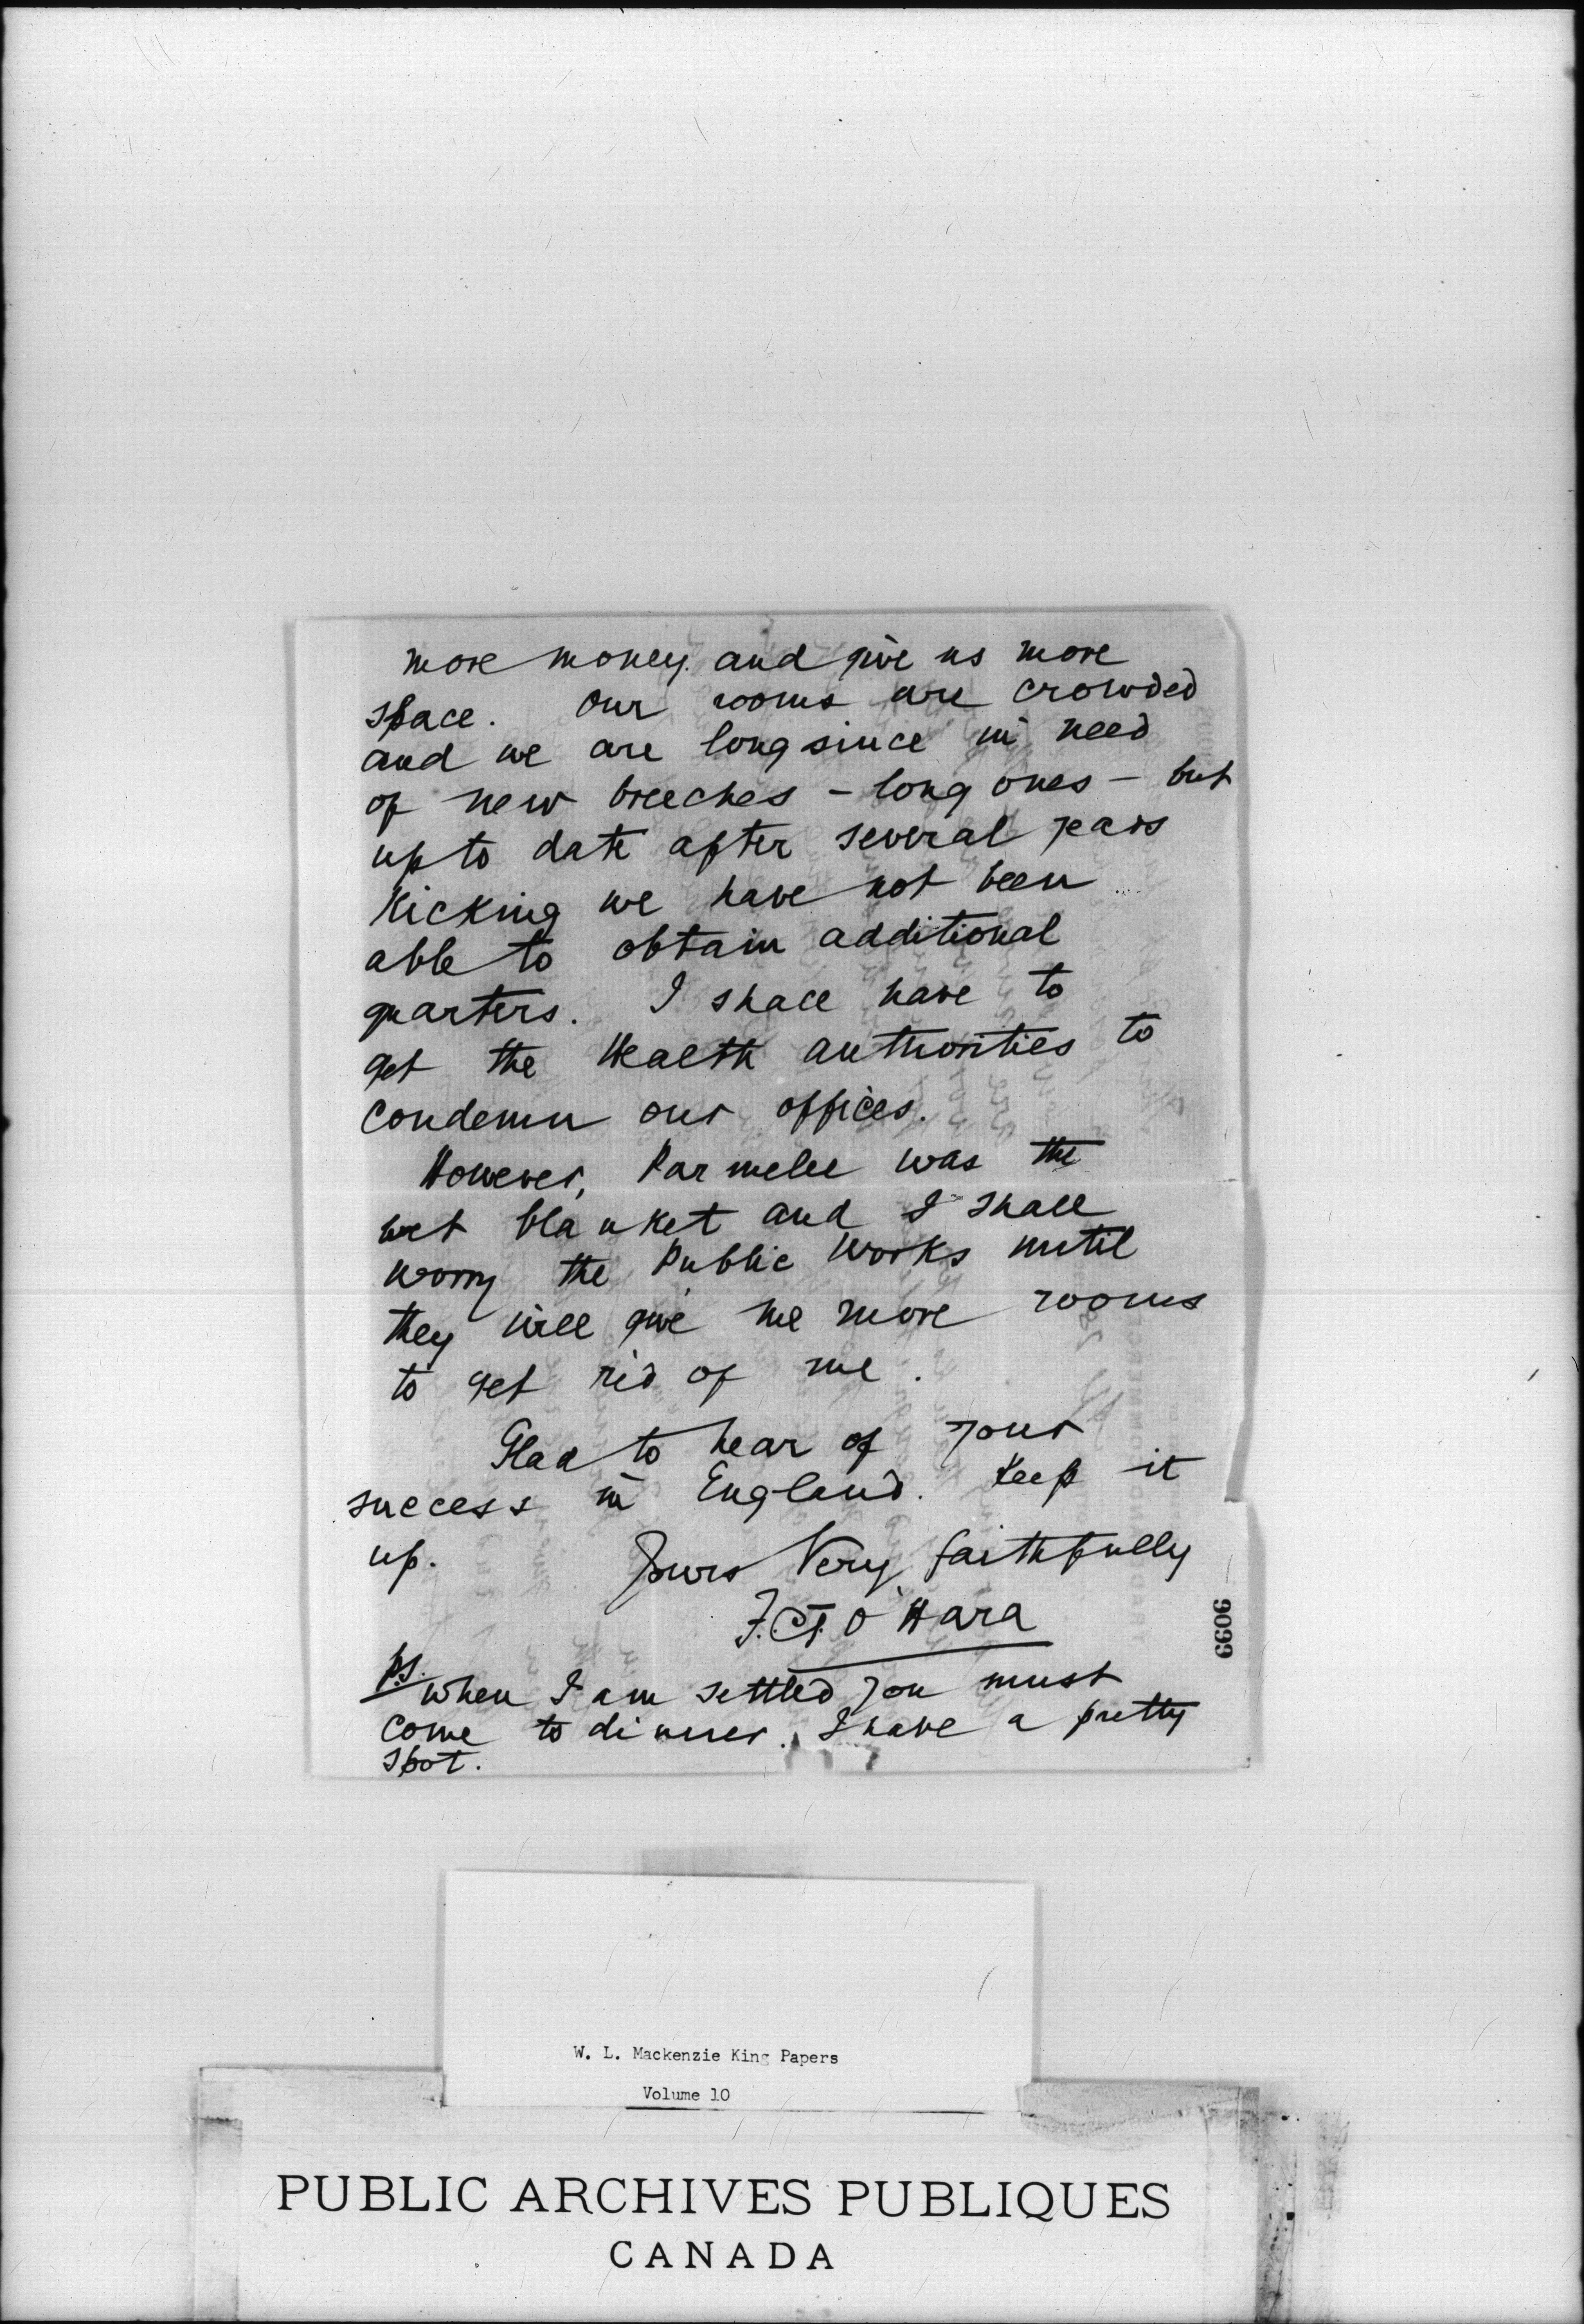 more money and give us more
space. Our rooms are crowded
and we are long since in need
of new breeches - long ones - but
up to date after several years
Kicking we have not been
able to obtain additional
quarters. I shall have to
get the Health authorities to
condemn our offices.
However, Parmelee was the
wet blanket and I shall
worry the Public Works until
they will give me more rooms
to get rid of me.
Glad to hear of your
success in England. Keep it
up. Yours Very faithfully
F.C.T. O'Hara
P.S. When I am settled you must
come to dinner. I have a pretty
spot.
9099
W. L. Mackenzie King Papers
Volume 10
PUBLIC ARCHIVES PUBLIQUES
CANADA